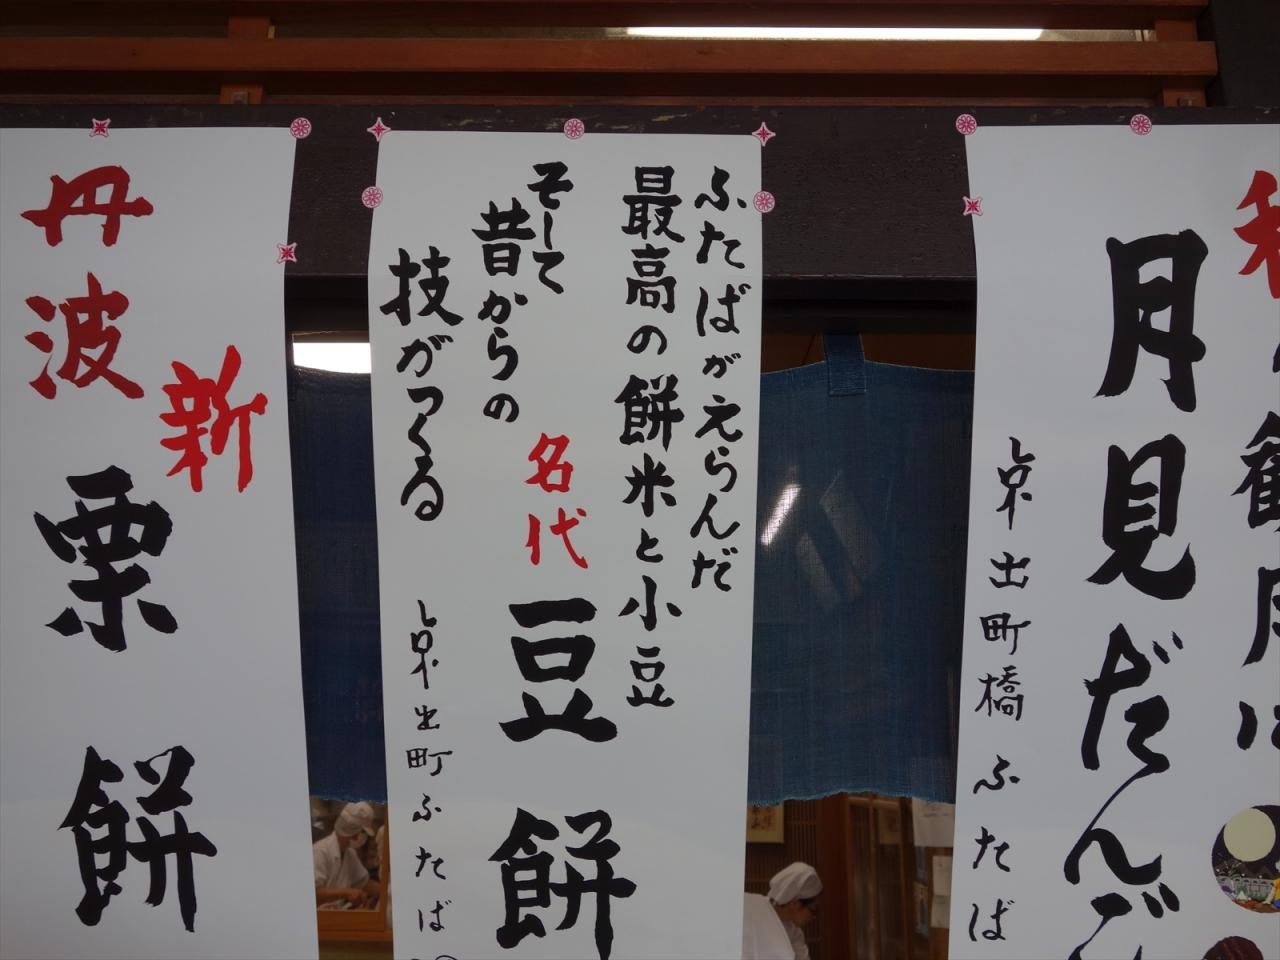 観月に
月見だんご
京出町橋ふたば
ふたばがえらんだ
最高の餅米と小豆
そして
昔からの
技がつくる
名代
豆餅
京出町ふたば
新
丹波
栗餅